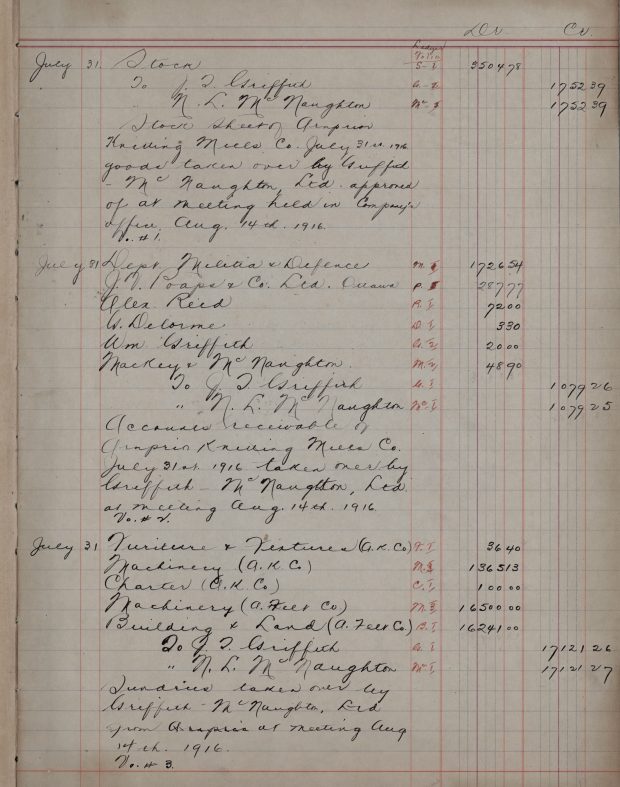 Dr. Cr.
Ledger
Folio
July 31 Stock S-I 3504 78
To J. T. Griffith G-I 1752 39
" N. L. McNaughton Mc-I 1752 39
Stock Sheet of Arnprior
Knitting Mills Co. July 31st 1916
goods taken over by Griffith
- McNaughton, Ltd. approved
of at meeting held in Company's
office, Aug. 14th. 1916.
Vo. # 1.
July 31 Dept. Militia & Defence M. I 1726 54
& Co. Ltd. Ottawa P. I 287 77
Alex. Reid R. I 72 00
G. Delorme D. I 3 30
Wm Griffith G. 2 20 00
Mackey & McNaughton. M. 2 48 90
To J. T. Griffith G. I 1079 26
" N. L. McNaughton Mc-I 1079 25
Accounts receivable of
Arnprior Knitting Mills Co.
July 31st. 1916 taken over by
Griffith - McNaughton, Ltd.
at meeting Aug. 14th. 1916.
Vo. # 2.
July 31 Furniture & Fixtures (A.K.Co) F. I 36 40
Machinery (A.K.Co) 1365 13
Charter (A.K.Co) C. I 100 00
Machinery (A. Felt Co) 16500 00
Building & Land (A. Felt Co) B. I 16241 00
To J. T. Griffith G. I 17121 26
" N. L. McNaughton Mc I 17121 27
Sundries taken over by
Griffith - McNaughton, Ltd
from Arnprior at meeting Aug
14th. 1916.
Vo. # 3.